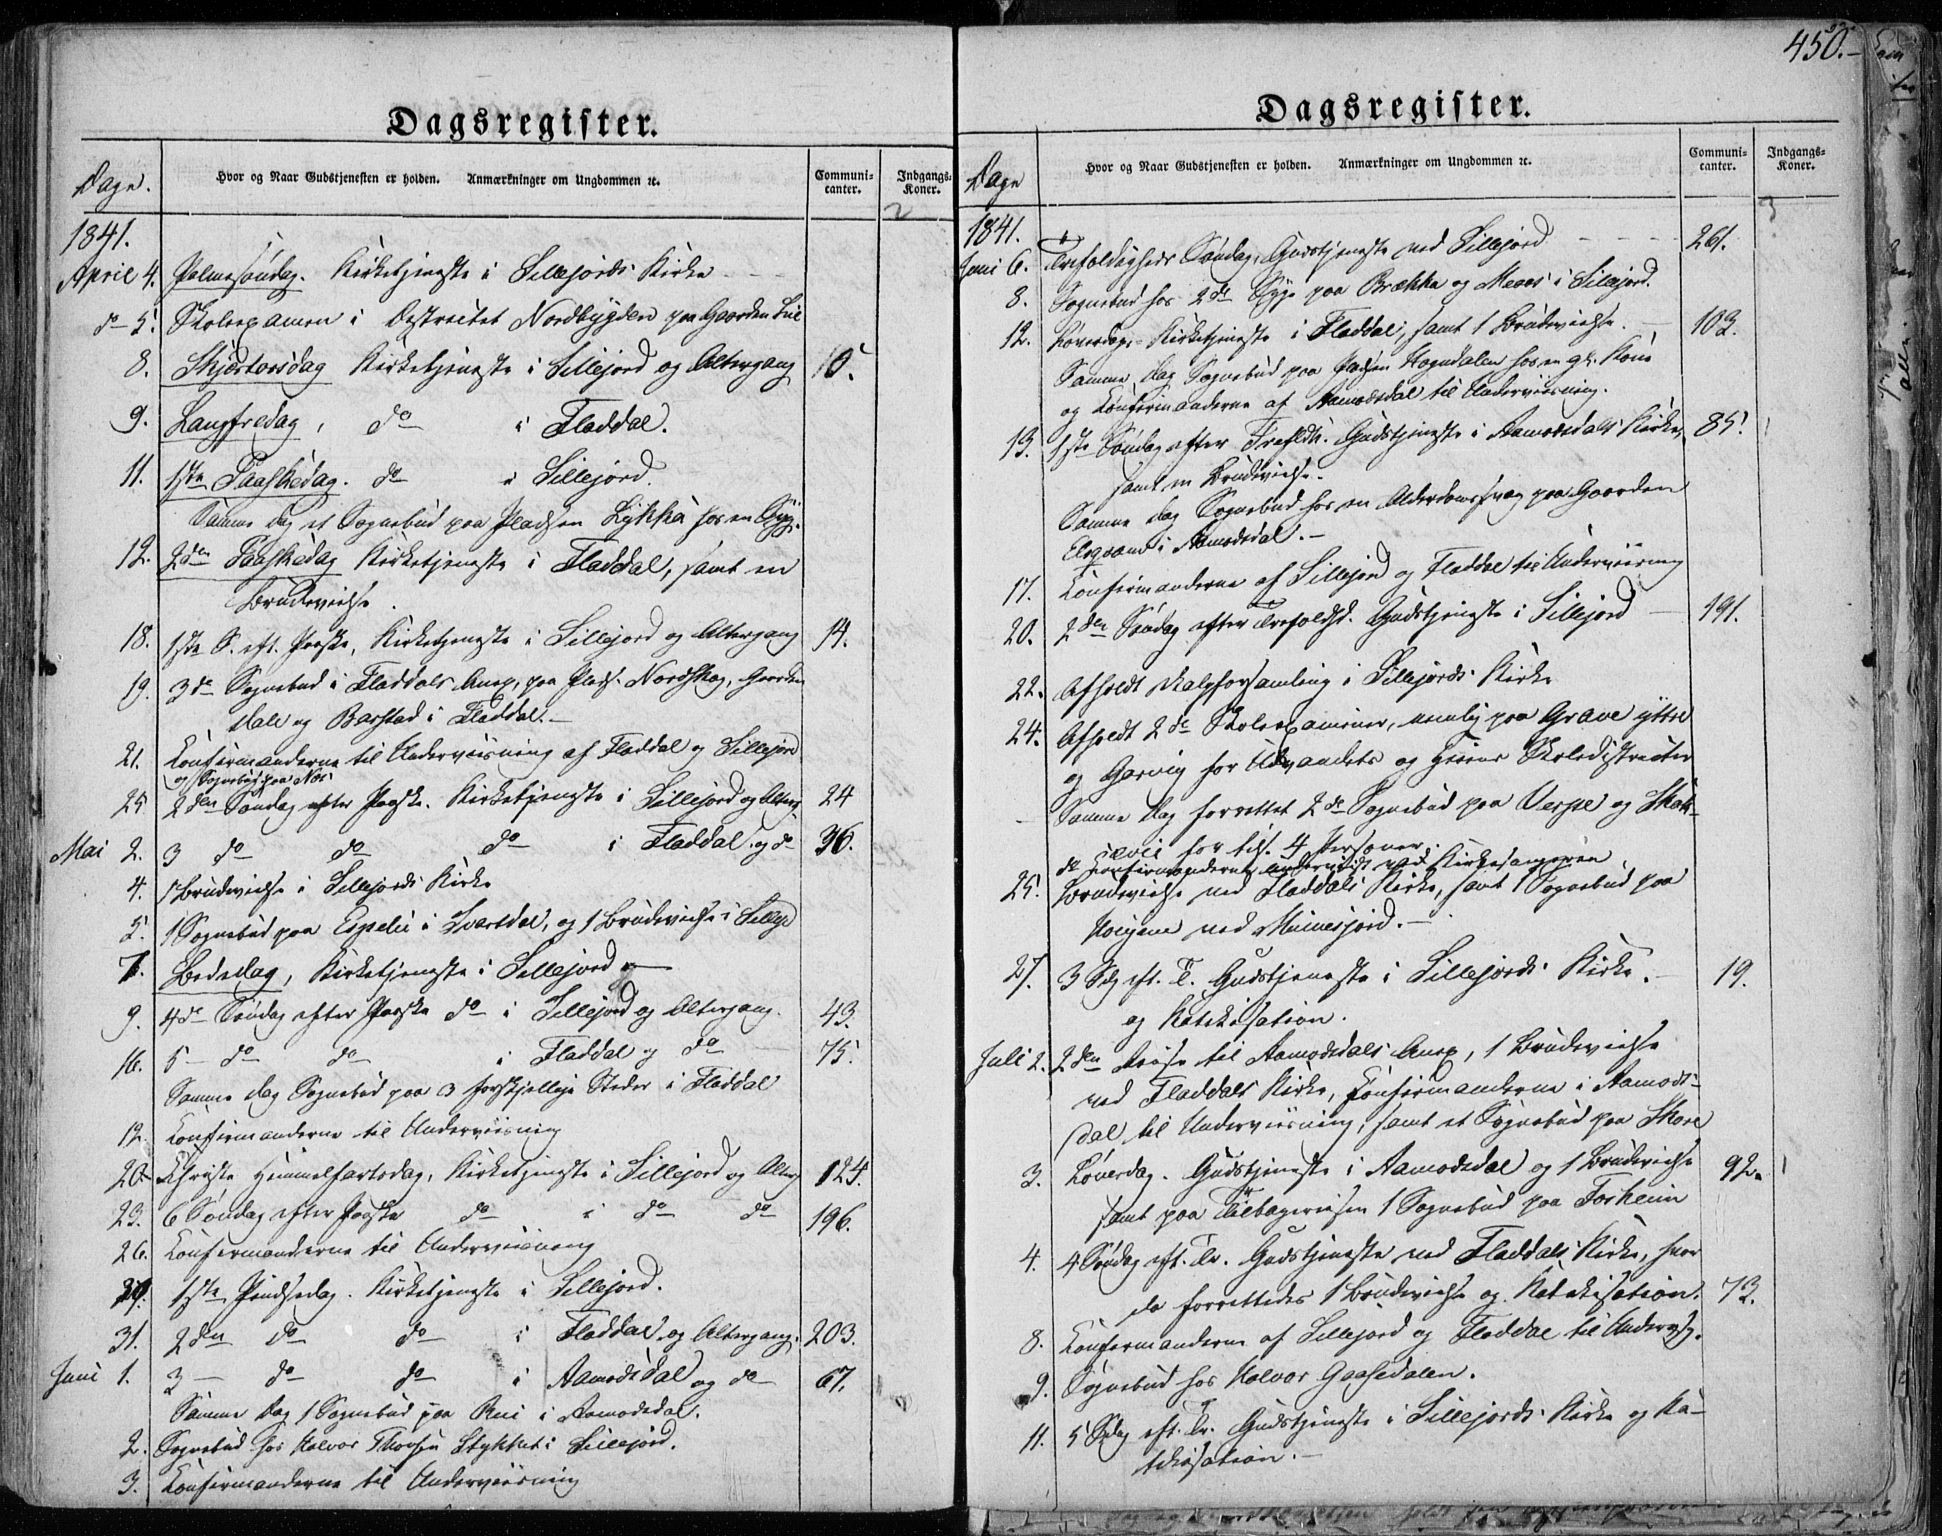 Dagsregister.
Dage.
Hvor og Naar Gudstjenesten er holden. Anmærkninger om Ungdommen ꝛc.
Communicanter.
Indgangs-Koner.
2
1841.
April 4. Palmesøndag. Kirketjeneste i Sillejords Kirke
do 5. Skoleexamen i Destrictet Nordbygden paa Gaarden Lie
8. Skjærtorsdag Kirketjeneste i Sillejord og Altergang 10.
9. Langfredag, do i Fladdal.
11. 1ste Paaskedag. do i Sillejord.
Samme Dag et Sognebud paa Pladsen Lykkja hos en Syg.
12. 2den Paaskedag Kirketjeneste i Fladdal, samt en
Brudevielse.
18. 1ste S. eft. Paaske, Kirketjeneste i Sillejord og Altergang 14.
19. 3de Sognebud i Fladdals Anex, paa Plads. Nordskog, Gaarden
Dale og Barstad i Fladdal.
21. Konfirmanderne til Underviisning af Fladdal og Sillejord
og Sognebud paa Næs
25. 2den Søndag efter Paaske. Kirketjeneste i Sillejord og Alterg. 24
Mai 2. 3 do do do i Fladdal og do 36.
4. 1 Brudevielse i Sillejords Kirke
5. 1 Sognebud paa Espelie i Svartdal, og 1 Brudevielse i Sillejd
7. Bededag, Kirketjeneste i Sillejord
9. 4de Søndag efter Paaske do i Sillejord og Altergang. 43.
16. 5 do do i Fladdal og do 75.
Samme Dag Sognebud paa 3 forskjellige Steder i Fladdal
12. Konfirmanderne til Underviisning
20. Christe Himmelfartsdag, Kirketjeneste i Sillejord og Alterg 124.
23. 6 Søndag efter Paaske do i do do 196.
26. Konfirmanderne til Underviisning
30. 1ste Pindsedag. Kirketjeneste i Sillejord.
31. 2den do do i Fladdal og Altergang. 203.
Juni 1. 3 do do i Aamodsdal og do 67.
Samme Dag 1 Sognebud paa Rui i Aamodsdal.
2. Sognebud hos Halvor Thorsen Stykket i Sillejord.
3. Konfirmanderne til Underviisning
450.
Dagsregister.
Dage
Hvor og Naar Gudstjenesten er holden. Anmærkninger om Ungdommen ꝛc.
Communicanter.
Indgangs-Koner.
3
1841.
Juni 6. Trefoldigheds Søndag, Gudstjeneste ved Sillejord 261.
8. Sognebud hos 2de Syge paa Brække og Moen i Sillejord.
12. Løverdag, Kirketjeneste i Fladdal, samt 1 Brudevielse. 103.
Samme Dag Sognebud paa Pladsen Hogndalen hos en gl. Kone
og Konfirmanderne af Aamodsdal til Underviisning.
13. 1ste Søndag efter Trefoldh. Gudstjeneste i Aamodsdals Kirke, 85.
samt en Brudevielse.
Samme Dag Sognebud hos en Alderdomssvag paa Gaarden
i Aamodsdal.
17. Konfirmanderne af Sillejord og Fladdal til Underviisning
20. 2den Søndag efter Trefoldhd. Gudstjeneste i Sillejord 191.
22. Afholdt Valgforsamling i Sillejords Kirke
24. Afholdt 2de Skoleexaminer, nemlig paa Grave yttre
og Garvig for Udvandets og Skoledistricter
Samme Dag forrettet 2de Sognebud paa Vespe og
for tils. 4 Personer.
de Konfirmanderne underviist ved Kirkesangeren
25. Brudevielse ved Fladdals Kirke, samt 1 Sognebud paa
Haugene ved Mannesjord.
27. 3 Sdg eft. T. Gudstjeneste i Sillejords Kirke. 19.
og Katekisation.
Juli 2. 2den Reise til Aamodsdals Anex, 1 Brudevielse
ved Fladdals Kirke, Konfirmanderne i Aamods-
dal til Underviisning, samt et Sognebud paa Skore
3. Løverdag. Gudstjeneste i Aamodsdal og 1 Brudevielse 92.
samt paa Tilbagereisen 1 Sognebud paa Forheim
4. 4 Søndag eft. Tr. Gudstjeneste ved Fladdals Kirke, hvor
da forrettedes 1 Brudevielse og Katekisation. 73.
8. Konfirmanderne af Sillejord og Fladdal til Undervsg.
9. Sognebud hos Halvor Gaasedalen.
11. 5 Sdg eft. Tr. Gudstjeneste i Sillejords Kirke og Ka-
tekisation.